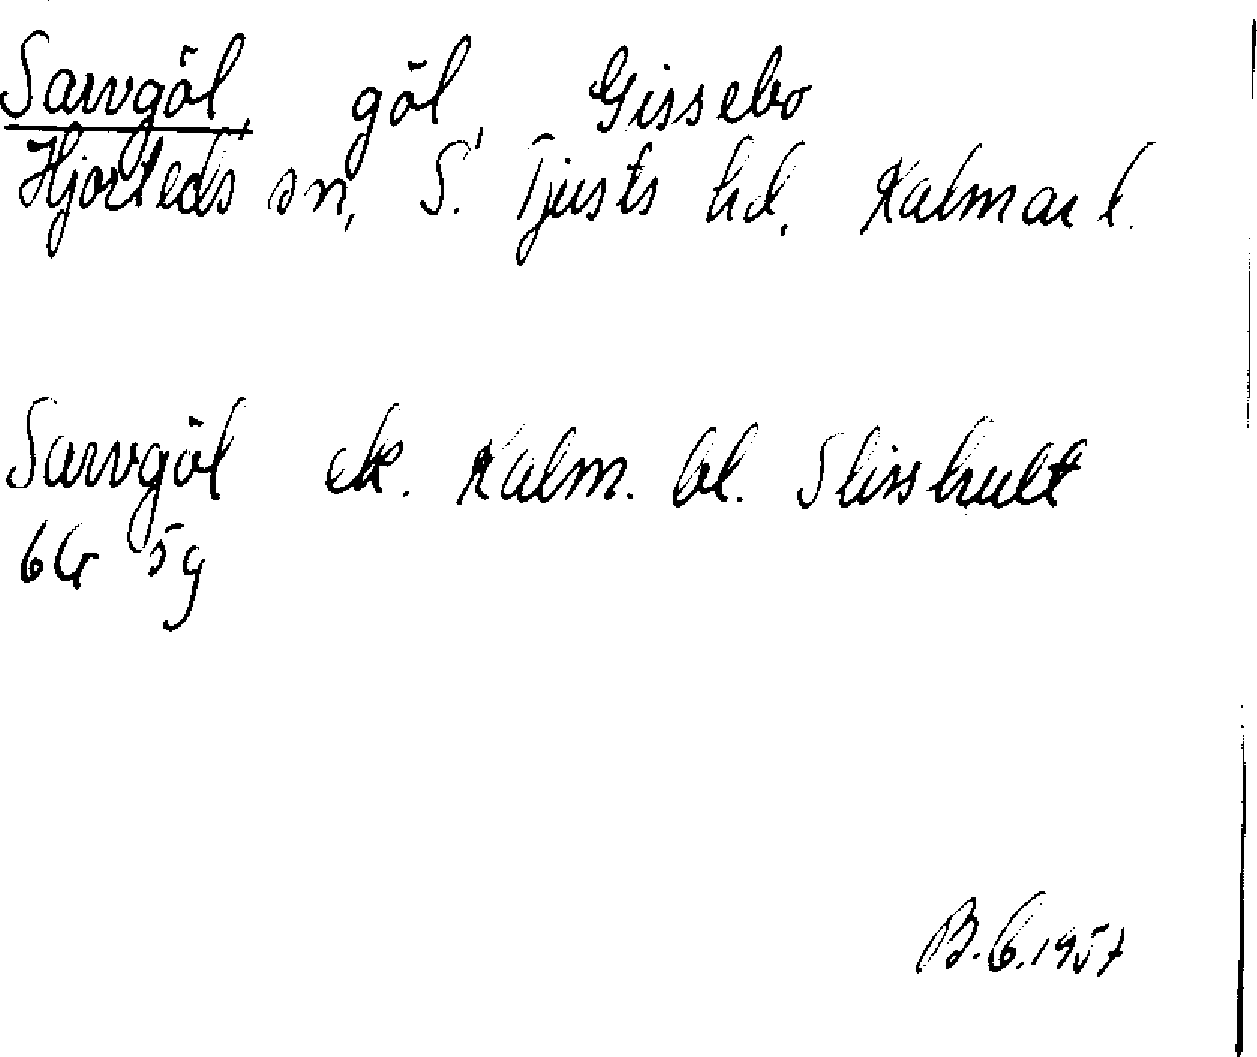 Sarvgöl, göl, Gissebo
Hjorteds sn, S. Tjusts hd, Kalmar l.
Sarvgöl ek. Kalm. bl. Slisshult
6G 5g
B.G. 1957